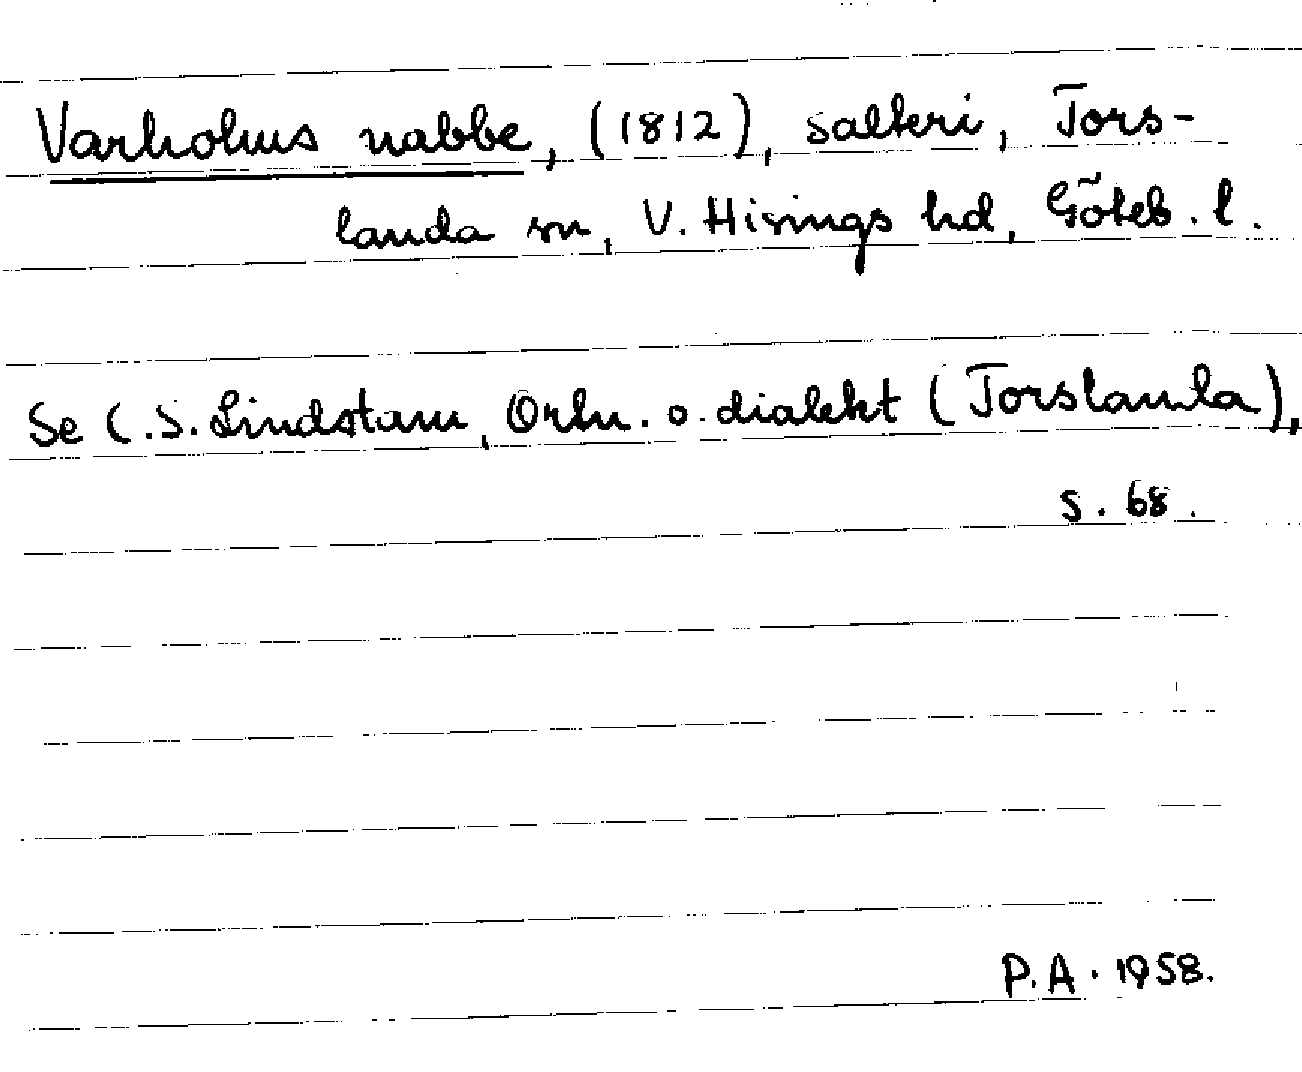 Varholms nabbe, (1812), salteri, Tors-
landa sn, V. Hisings hd, Göteb. l.
Se C.S. Lindstam, Ortn. o. dialekt (Torslanda),
s. 68.
P.A. 1958.